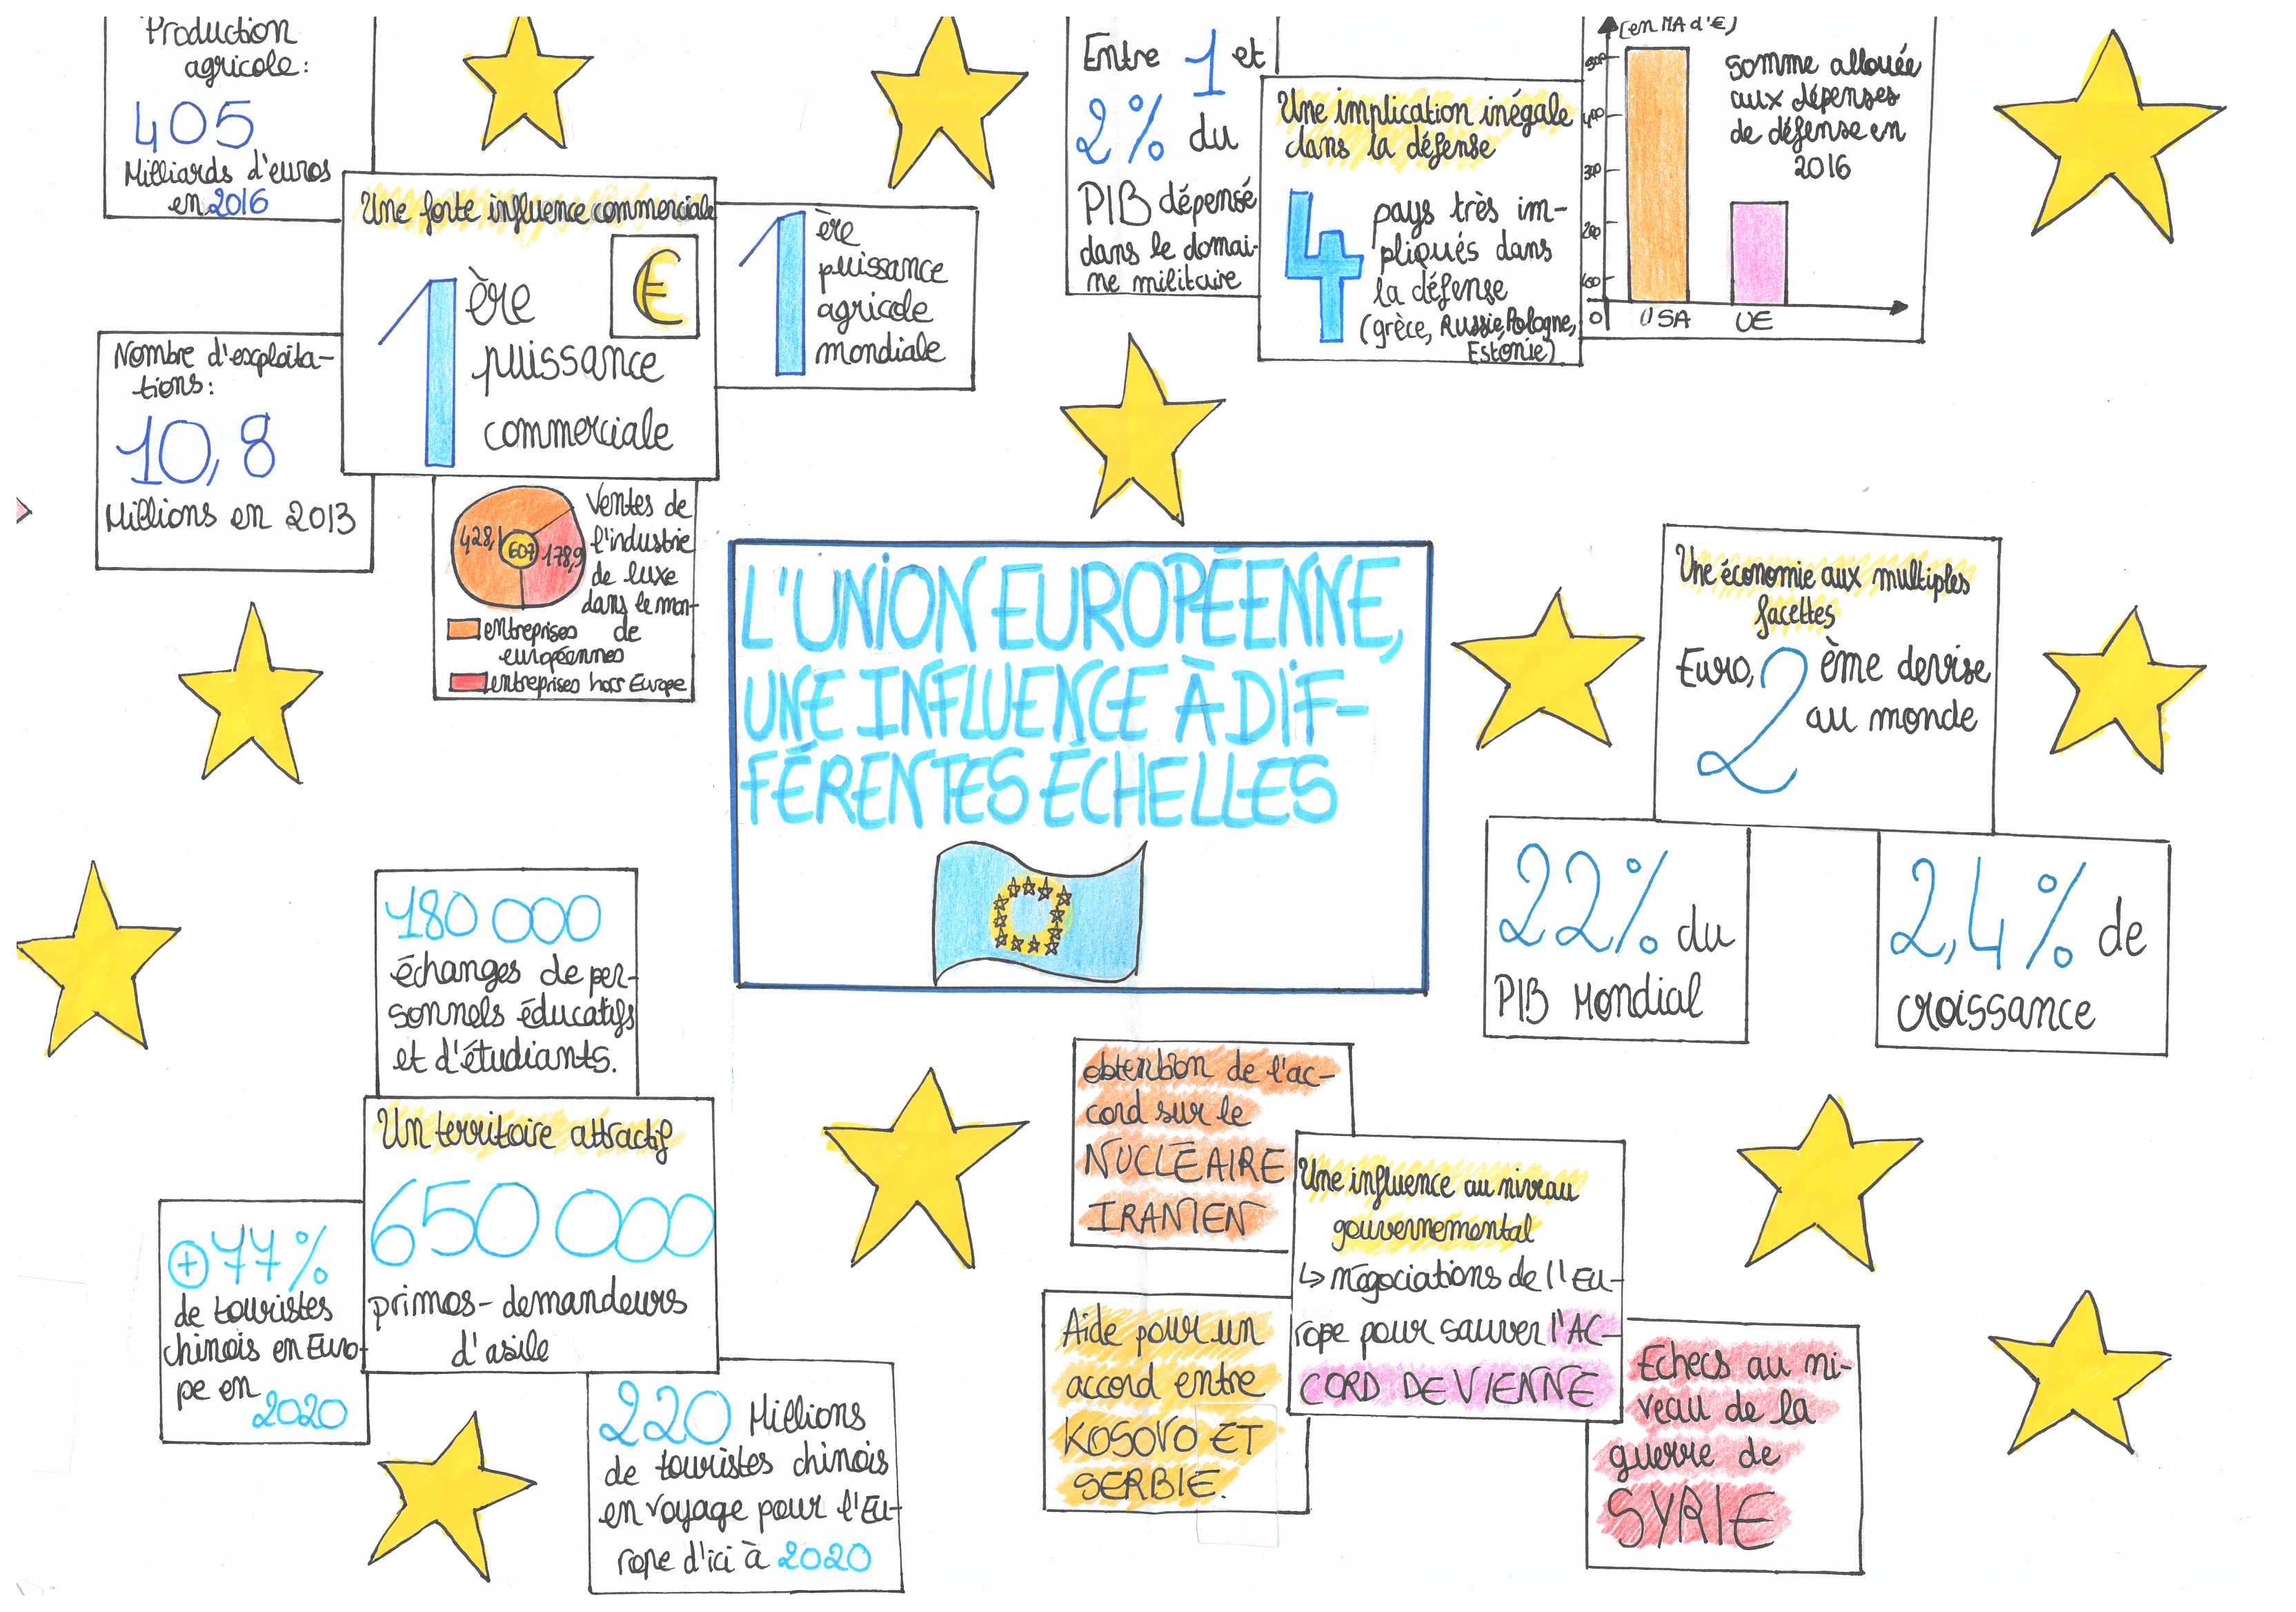 Production
agricole:
405
Milliards d'euros
en 2016
Une forte influence commerciale
1 ère
puissance
commerciale
€
1 ère
puissance
agricole
mondiale
Nombre d'exploita-
tions:
10,8
Millions en 2013
428,1
607
178,9
Ventes de
l'industrie
de luxe
dans le mon-
de
entreprises
européennes
entreprises hors Europe
Entre 1 et
2% du
PIB dépensé
dans le domai-
ne militaire
Une implication inégale
dans la défense
4 pays très im-
pliqués dans
la défense
(grèce, Russie, Pologne,
Estonie)
(en MA d'€)
500
400
300
200
100
0
USA
UE
somme allouée
aux dépenses
de défense en
2016
L'UNION EUROPÉENNE,
UNE INFLUENCE À DIF-
FÉRENTES ÉCHELLES
Une économie aux multiples
facettes
Euro, 2 ème devise
au monde
22% du
PIB Mondial
2,4% de
croissance
180 000
échanges de per-
sonnels éducatifs
et d'étudiants.
Un territoire attractif
650 000
primos-demandeurs
d'asile
+77%
de touristes
chinois en Euro-
pe en
2020
220 Millions
de touristes chinois
en voyage pour l'Eu-
rope d'ici à 2020
obtention de l'ac-
cord sur le
NUCLÉAIRE
IRANIEN
Une influence au niveau
gouvernemental
↳ négociations de l'Eu-
rope pour sauver l'AC-
CORD DE VIENNE
Aide pour un
accord entre
KOSOVO ET
SERBIE.
Echecs au ni-
veau de la
guerre de
SYRIE